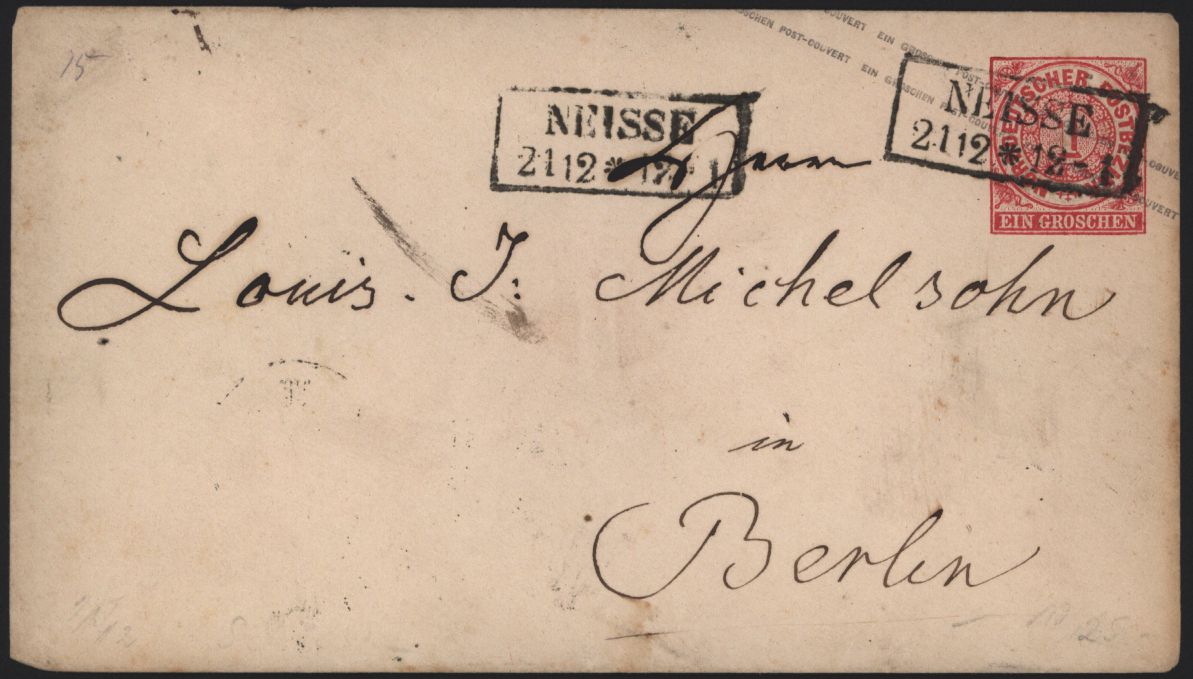 15
EIN GROSCHEN POST-COUVERT EIN GROSCHEN POST-COUVERT
NEISSE
21 12 * 12-1
NEISSE
21 12 * 12-1
NORDDEUTSCHER POSTBEZIRK
1
EIN GROSCHEN
Herrn
Louis. J: Michelsohn
in
Berlin
25